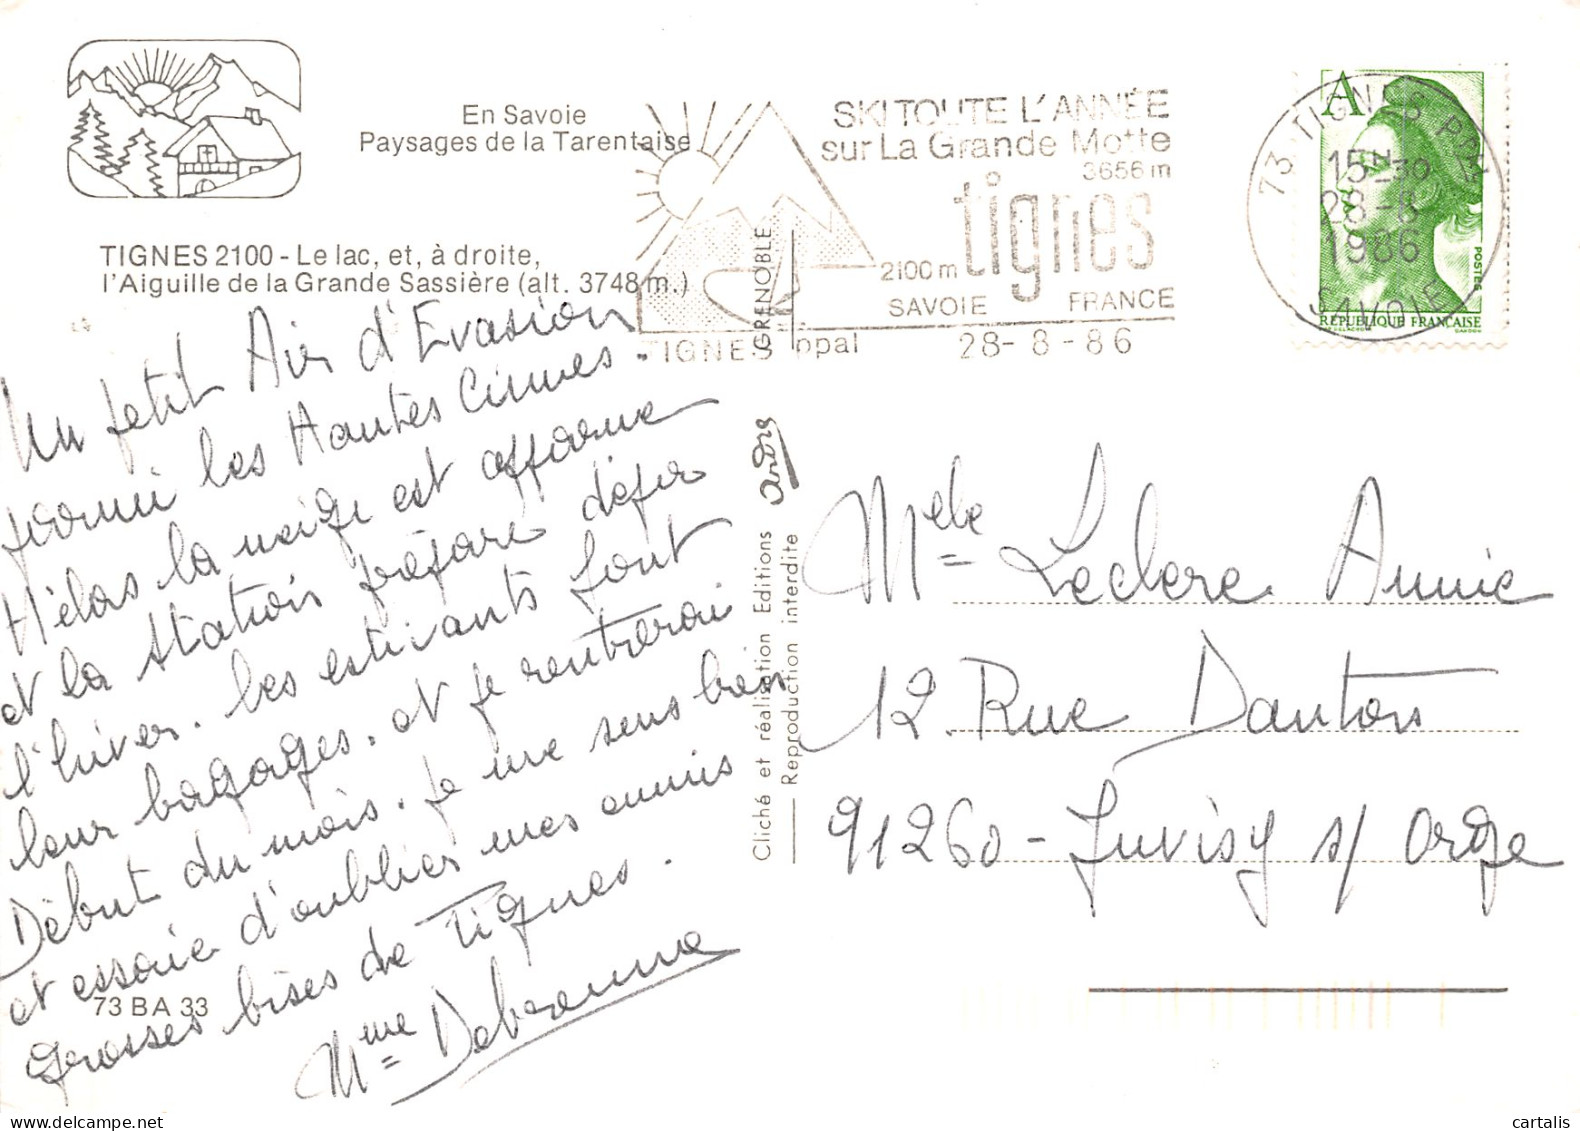 En Savoie
Paysages de la Tarentaise
TIGNES 2100 - Le lac, et, à droite,
l'Aiguille de la Grande Sassière (alt. 3748 m.)
Un petit Air d'Evasion
parmi les Hautes Cimes.
Hélas la neige est
et la station prépare déjà
l'hiver. Les estivants font
leur bagages. et je rentrerai
Début du mois. je me sens bien
et essaie d'oublier mes ennuis
Grosses bises de Tignes.
Mme
73 BA 33
SKI TOUTE L'ANNÉE
sur La Grande Motte
3656 m
tignes
2100 m
SAVOIE FRANCE
TIGNES ppal 28-8-86
73 TIGNES PPAL
15H30
28-8
1986
SAVOIE
A
POSTES
RÉPUBLIQUE FRANÇAISE
GRENOBLE
André
Cliché et réalisation Editions
Reproduction interdite
Melle Leclere Annie
12 Rue Danton
91260 - Juvisy s/ Orge
cartalis